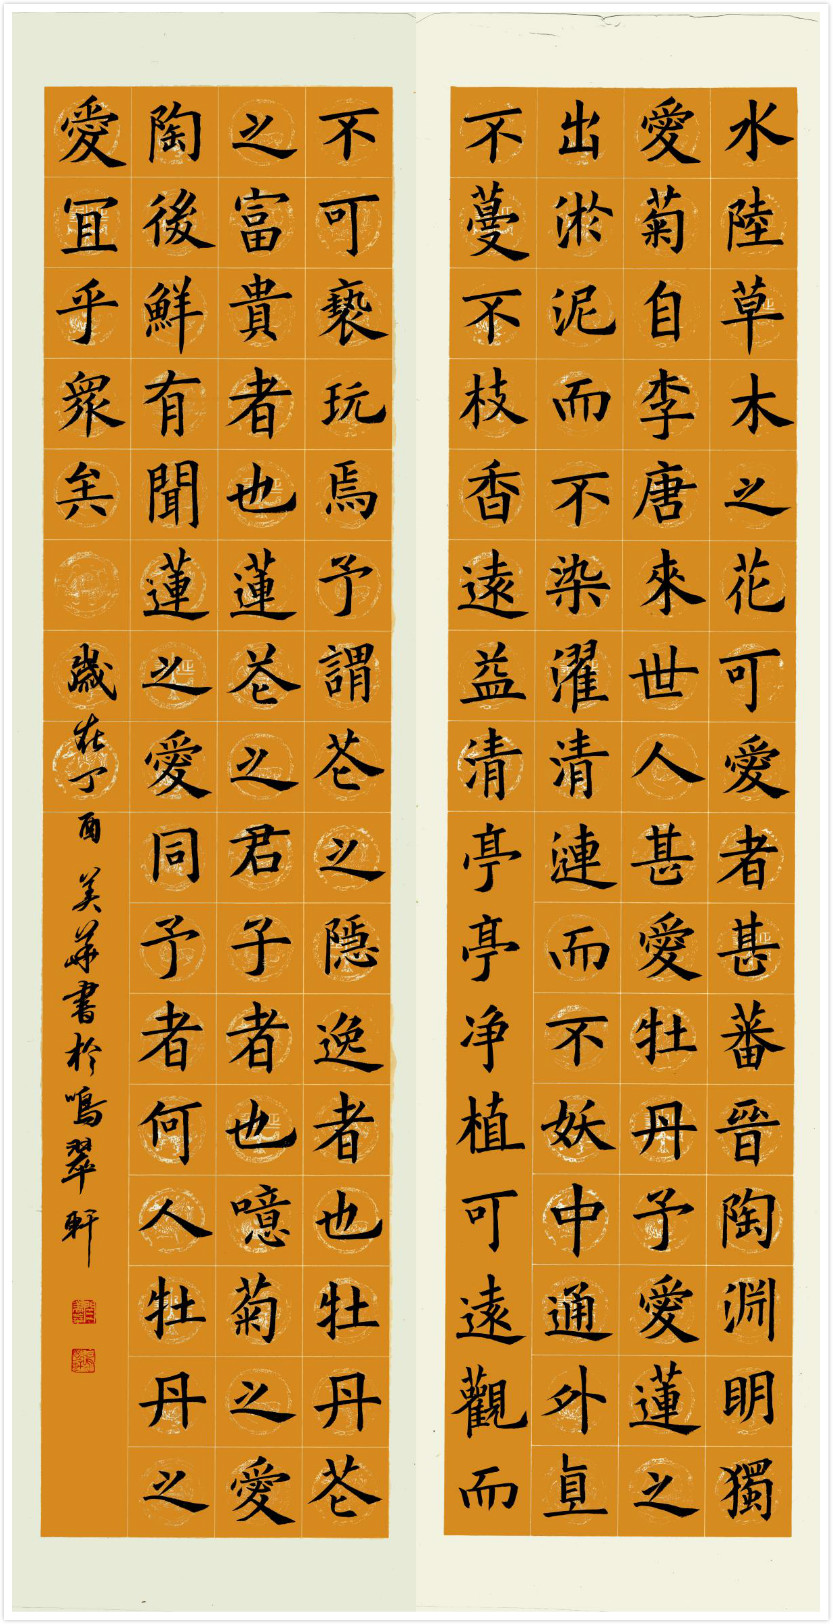 水陸草木之花可愛者甚蕃晉陶淵明獨
愛菊自李唐來世人甚愛牡丹予愛蓮之
出淤泥而不染濯清漣而不妖中通外直
不蔓不枝香遠益清亭亭净植可遠觀而
不可褻玩焉予謂花之隱逸者也牡丹花
之富貴者也蓮花之君子者也噫菊之愛
陶後鮮有聞蓮之愛同予者何人牡丹之
愛宜乎眾矣 歲在丁酉 美華書於鳴翠軒